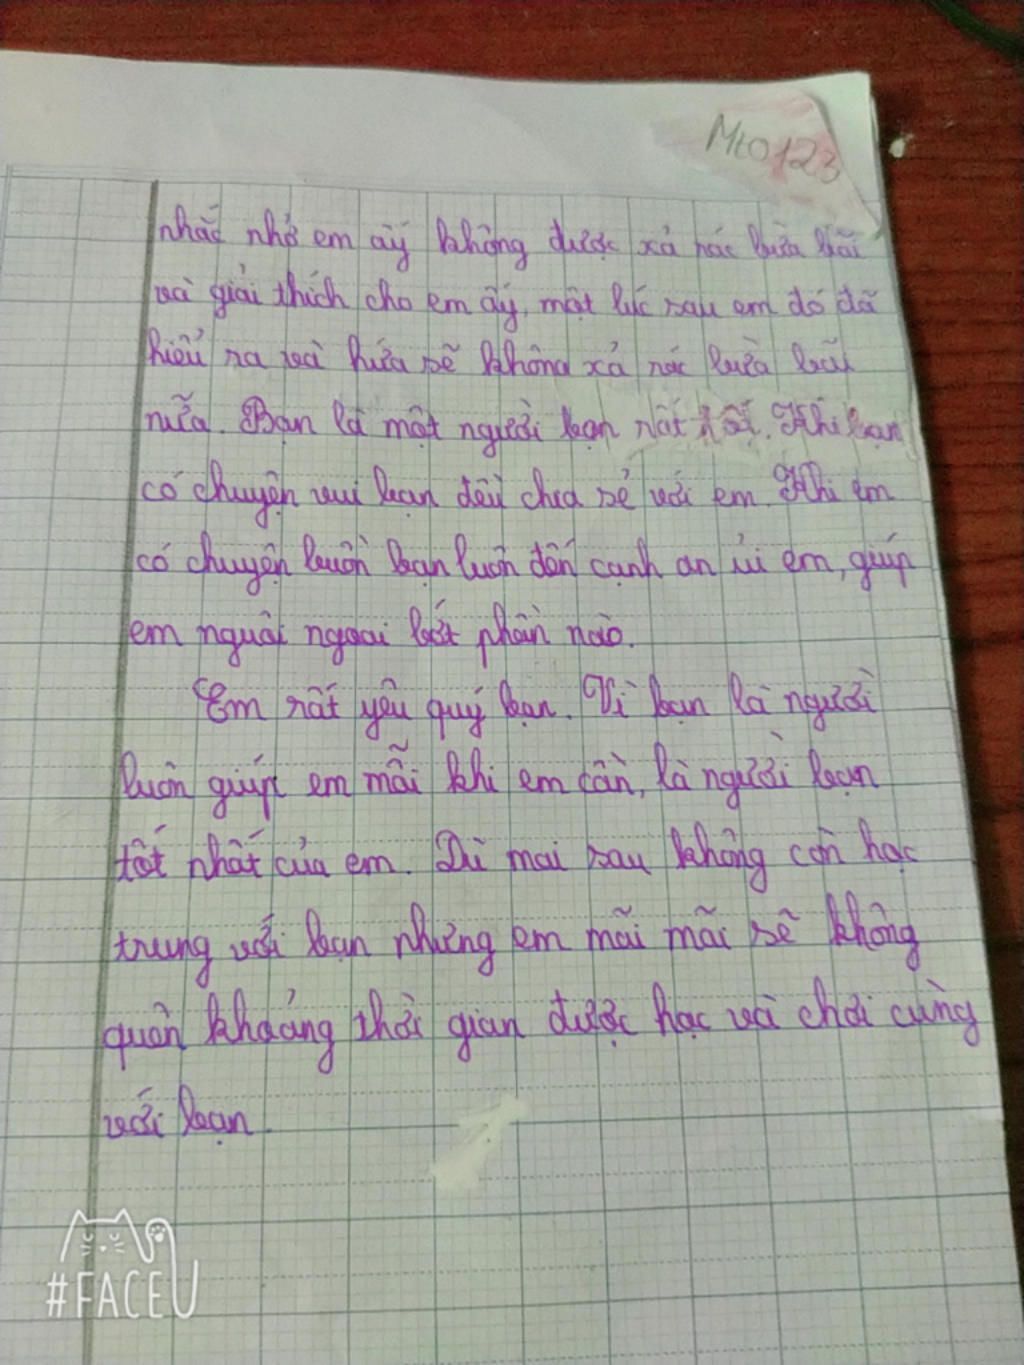 Mto123
nhắc nhở em ấy không được xả rác bừa bãi
và giải thích cho em ấy, một lúc sau em đó đã
hiểu ra và hứa sẽ không xả rác bừa bãi
nữa. Bạn là một người bạn rất tốt. Khi bạn
có chuyện vui bạn đều chia sẻ với em. Khi em
có chuyện buồn bạn luôn đến cạnh an ủi em, giúp
em nguôi ngoai bớt phần nào.
Em rất yêu quý bạn. Vì bạn là người
luôn giúp em mỗi khi em cần, là người bạn
tốt nhất của em. Dù mai sau không còn học
trung với bạn nhưng em mãi mãi sẽ không
quên khoảng thời gian được học và chơi cùng
với bạn.
#FACEU